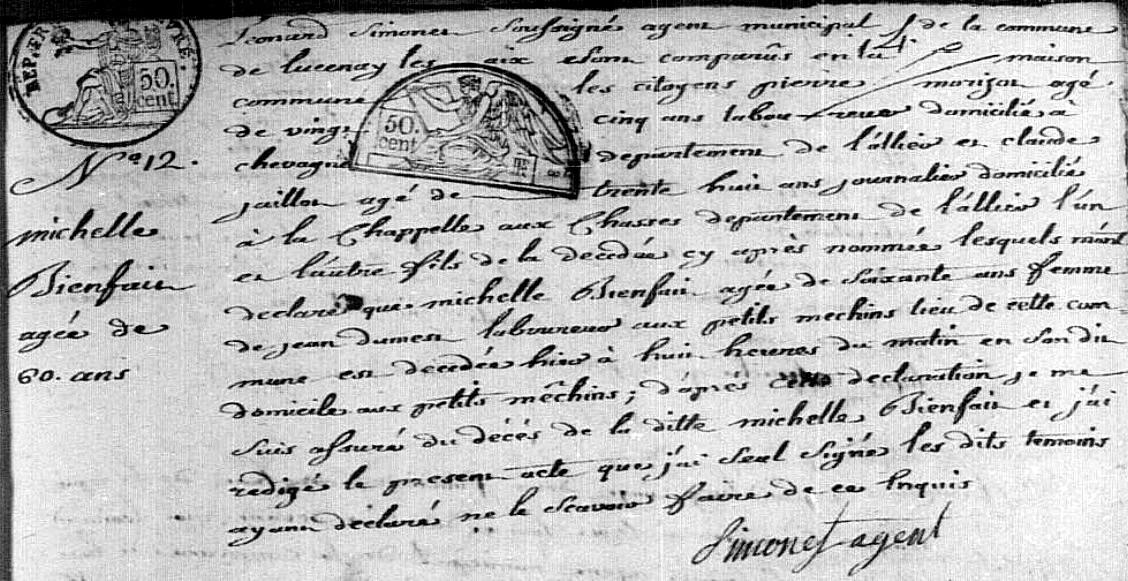 REP. FR
50.
cent
50.
cent
Léonard Simonet Soussigné agent municipal de la commune
de lucenay les aix est sont comparûs en la maison
commune les citoyens pierre marizot agé
de vingt cinq ans laboureur domicilié à
chevagne departement de l'allier et claude
jaillot agé de trente huit ans journalier domicilié
à la Chappelle aux Chasses departement de l'allier l'un
et l'autre fils de la decedée cy après nommée lesquels m'ont
declaré que michelle Bienfait agée de Soixante ans femme
de jean dumest laboureur aux petits mechins lieu de cette com-
mune est decedée hier à huit heures du matin en Son dit
domicile aux petits mêchins ; d'après cette declaration je me
Suis assuré du décés de la ditte michelle Bienfait et j'ai
redigé le present acte que j'ai Seul Signé les dits temoins
ayant déclaré ne le Scavoir faire de ce Inquis
Simonet agent
N° 12.
michelle
Bienfait
agée de
60. ans